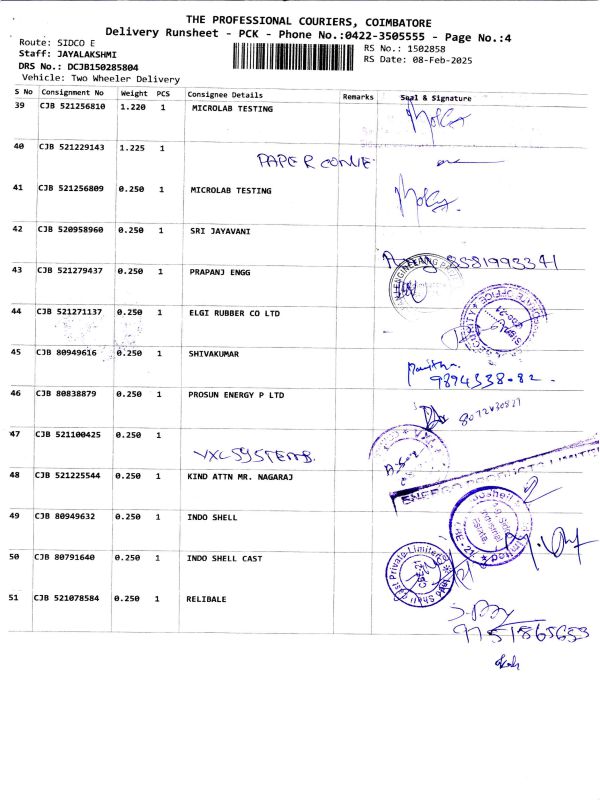 THE PROFESSIONAL COURIERS, COIMBATORE
Delivery Runsheet - PCK - Phone No.:0422-3505555 - Page No.:4
Route: SIDCO E
RS No.: 1502858
Staff: JAYALAKSHMI
RS Date: 08-Feb-2025
DRS No.: DCJB150285804
Vehicle: Two Wheeler Delivery
S No Consignment No Weight PCS Consignee Details Remarks Seal & Signature
39 CJB 521256810 1.220 1 MICROLAB TESTING
40 CJB 521229143 1.225 1
PAPER CONVE
41 CJB 521256809 0.250 1 MICROLAB TESTING
42 CJB 520958960 0.250 1 SRI JAYAVANI
8581993341
43 CJB 521279437 0.250 1 PRAPANJ ENGG
44 CJB 521271137 0.250 1 ELGI RUBBER CO LTD
45 CJB 80949616 0.250 1 SHIVAKUMAR
9894338.82.
46 CJB 80838879 0.250 1 PROSUN ENERGY P LTD
47 CJB 521100425 0.250 1
VXL SYSTEMS.
48 CJB 521225544 0.250 1 KIND ATTN MR. NAGARAJ
49 CJB 80949632 0.250 1 INDO SHELL
50 CJB 80791640 0.250 1 INDO SHELL CAST
51 CJB 521078584 0.250 1 RELIBALE
9751865653